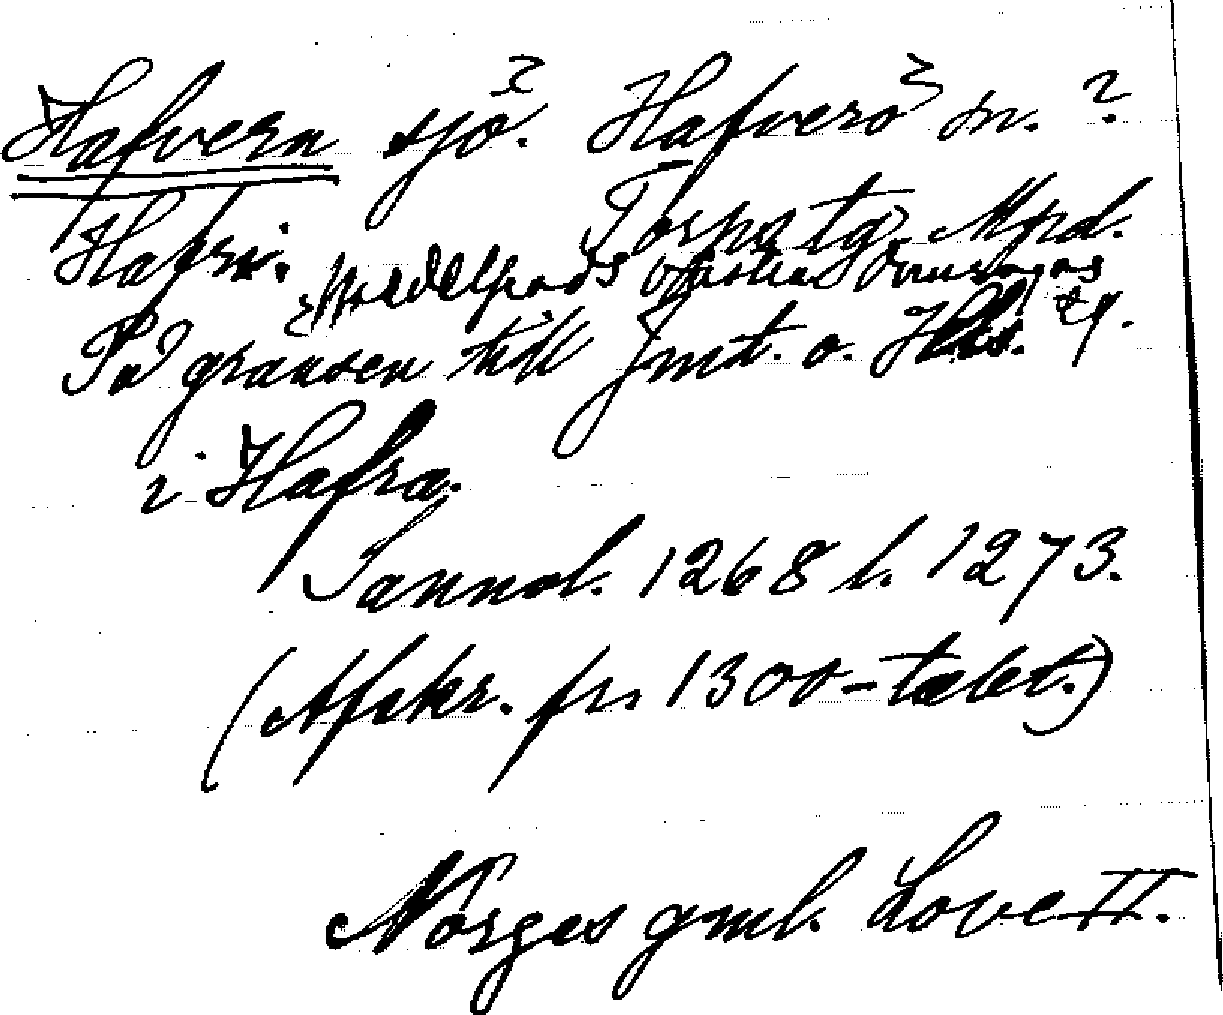 Hafvern sjö. Hafverö sn. ?
Hafre. Torps tg. Mpd.
Medelpads västra domsagas
På gränsen till Jmt. o. Hls.
i Hafra.
Sannol. 1268 l. 1273.
(Afskr. fr. 1300-talet.)
Norges gml. Love II.